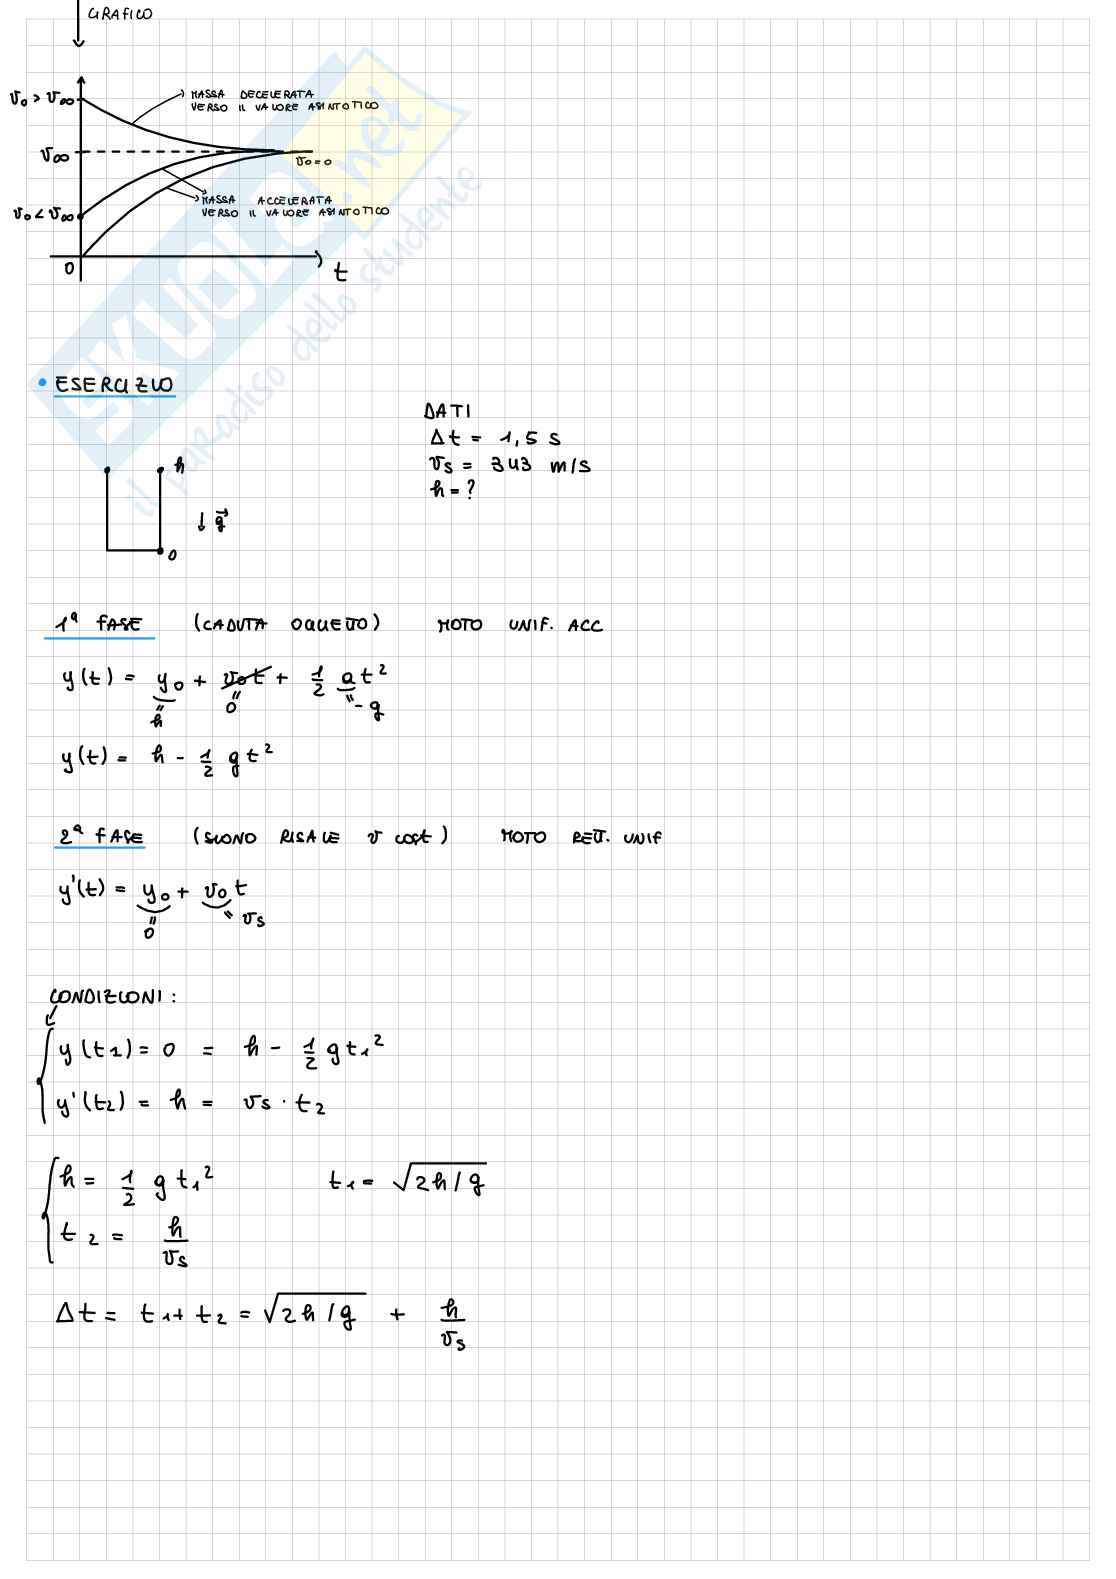 GRAFICO
v₀ > v∞
MASSA DECELERATA
VERSO IL VALORE ASINTOTICO
v∞
v₀ = 0
MASSA ACCELERATA
VERSO IL VALORE ASINTOTICO
v₀ < v∞
0
t
SKUOLA.net
il paradiso dello studente
• ESERCIZIO
DATI
Δt = 1,5 s
vs = 343 m/s
h = ?
h
↓ g⃗
0
1ª FASE (CADUTA OGGETTO) MOTO UNIF. ACC
y(t) = y₀ + v₀t + 1/2 a t²
h 0 -g
y(t) = h - 1/2 g t²
2ª FASE (SUONO RISALE v cost) MOTO RETT. UNIF
y'(t) = y₀ + v₀ t
0 vs
CONDIZIONI :
y(t₁) = 0 = h - 1/2 g t₁²
y'(t₂) = h = vs · t₂
h = 1/2 g t₁² t₁ = √2h/g
t₂ = h/vs
Δt = t₁ + t₂ = √2h/g + h/vs